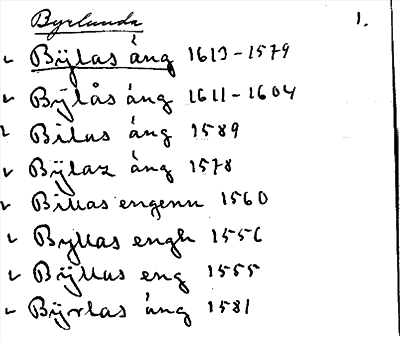 Byrlunda 1.
✓ Bÿlas áng 1613-1579
✓ Bÿlås áng 1611-1604
✓ Bilas áng 1589
✓ Bÿlaz áng 1578
✓ Billas engenn 1560
✓ Byllas engh 1556
✓ Bÿllas eng 1555
✓ Bÿrlas áng 1581